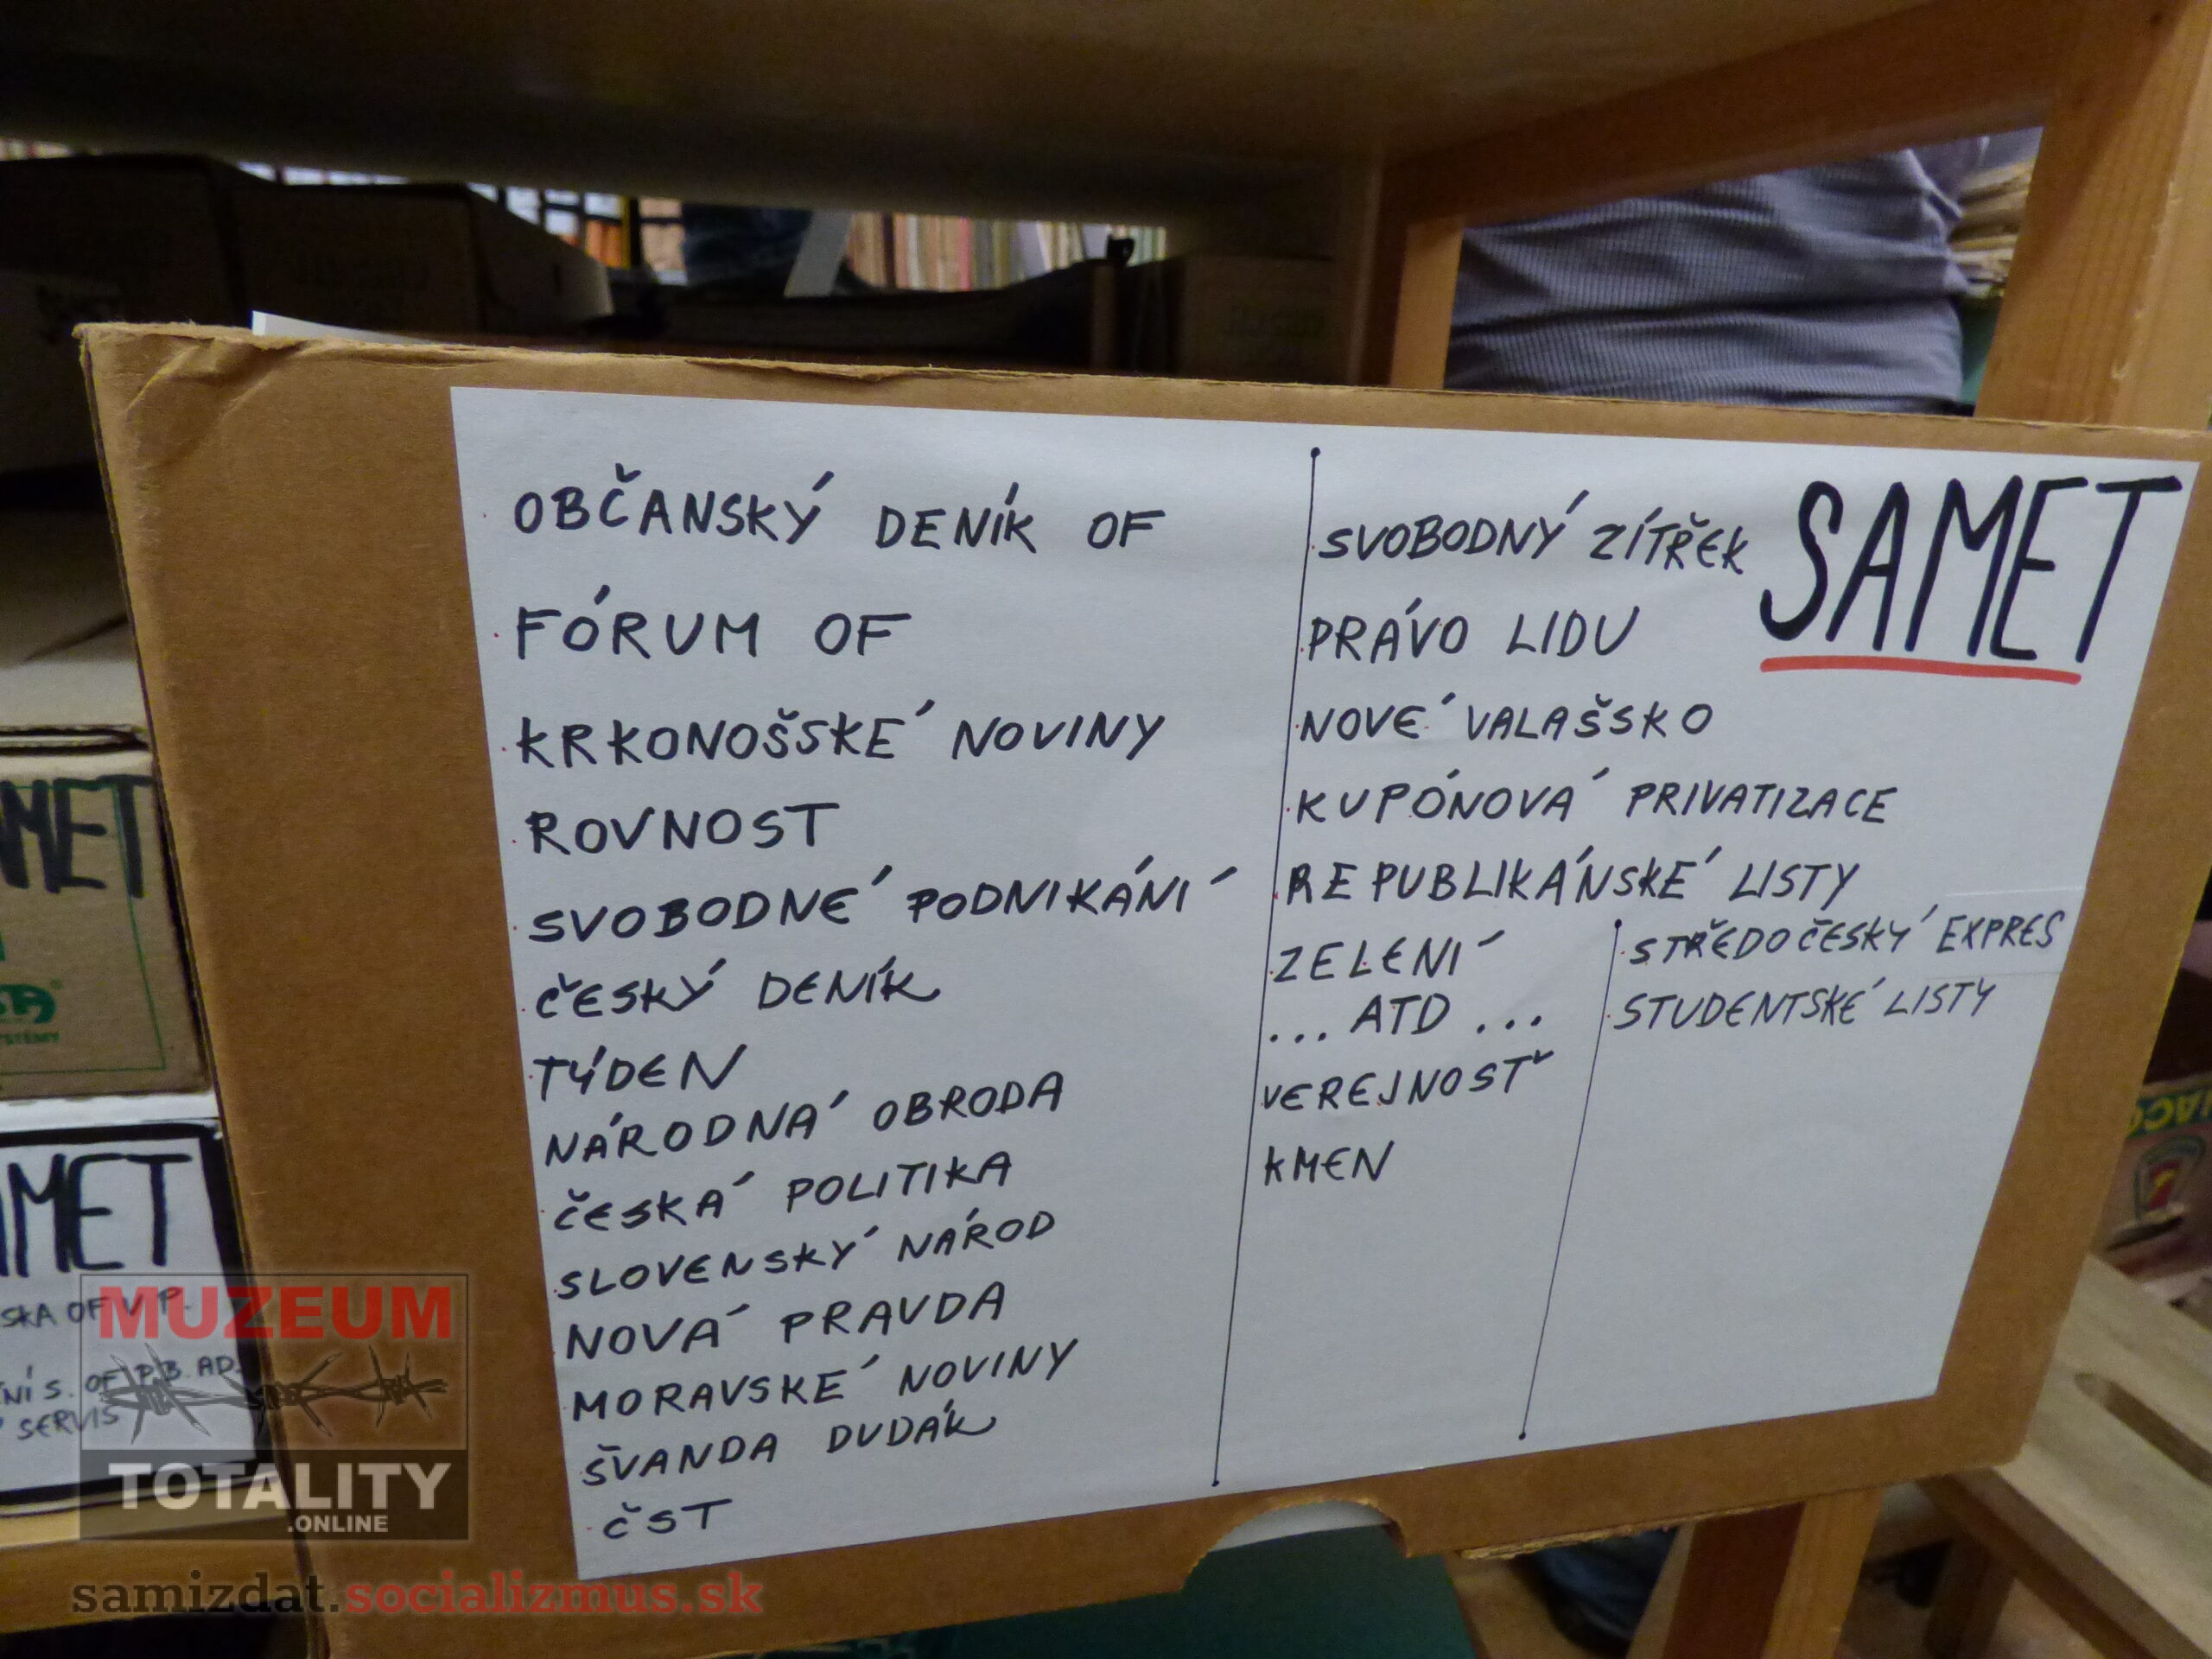 OBČANSKÝ DENÍK OF
FÓRUM OF
KRKONOŠSKÉ NOVINY
ROVNOST
SVOBODNÉ PODNIKÁNÍ
ČESKÝ DENÍK
TÝDEN
NÁRODNÁ OBRODA
ČESKÁ POLITIKA
SLOVENSKÝ NÁROD
NOVÁ PRAVDA
MORAVSKÉ NOVINY
ŠVANDA DUDÁK
ČST
SAMET
SVOBODNÝ ZÍTŘEK
PRÁVO LIDU
NOVÉ VALAŠSKO
KUPÓNOVÁ PRIVATIZACE
REPUBLIKÁNSKÉ LISTY
ZELENÍ
... ATD ...
VEREJNOSŤ
KMEN
STŘEDOČESKÝ EXPRES
STUDENTSKÉ LISTY
MET
MET
SKA OF V P.
NÍ S. OF P.B. AD.
SERVIS
MUZEUM
TOTALITY
.ONLINE
samizdat.socializmus.sk